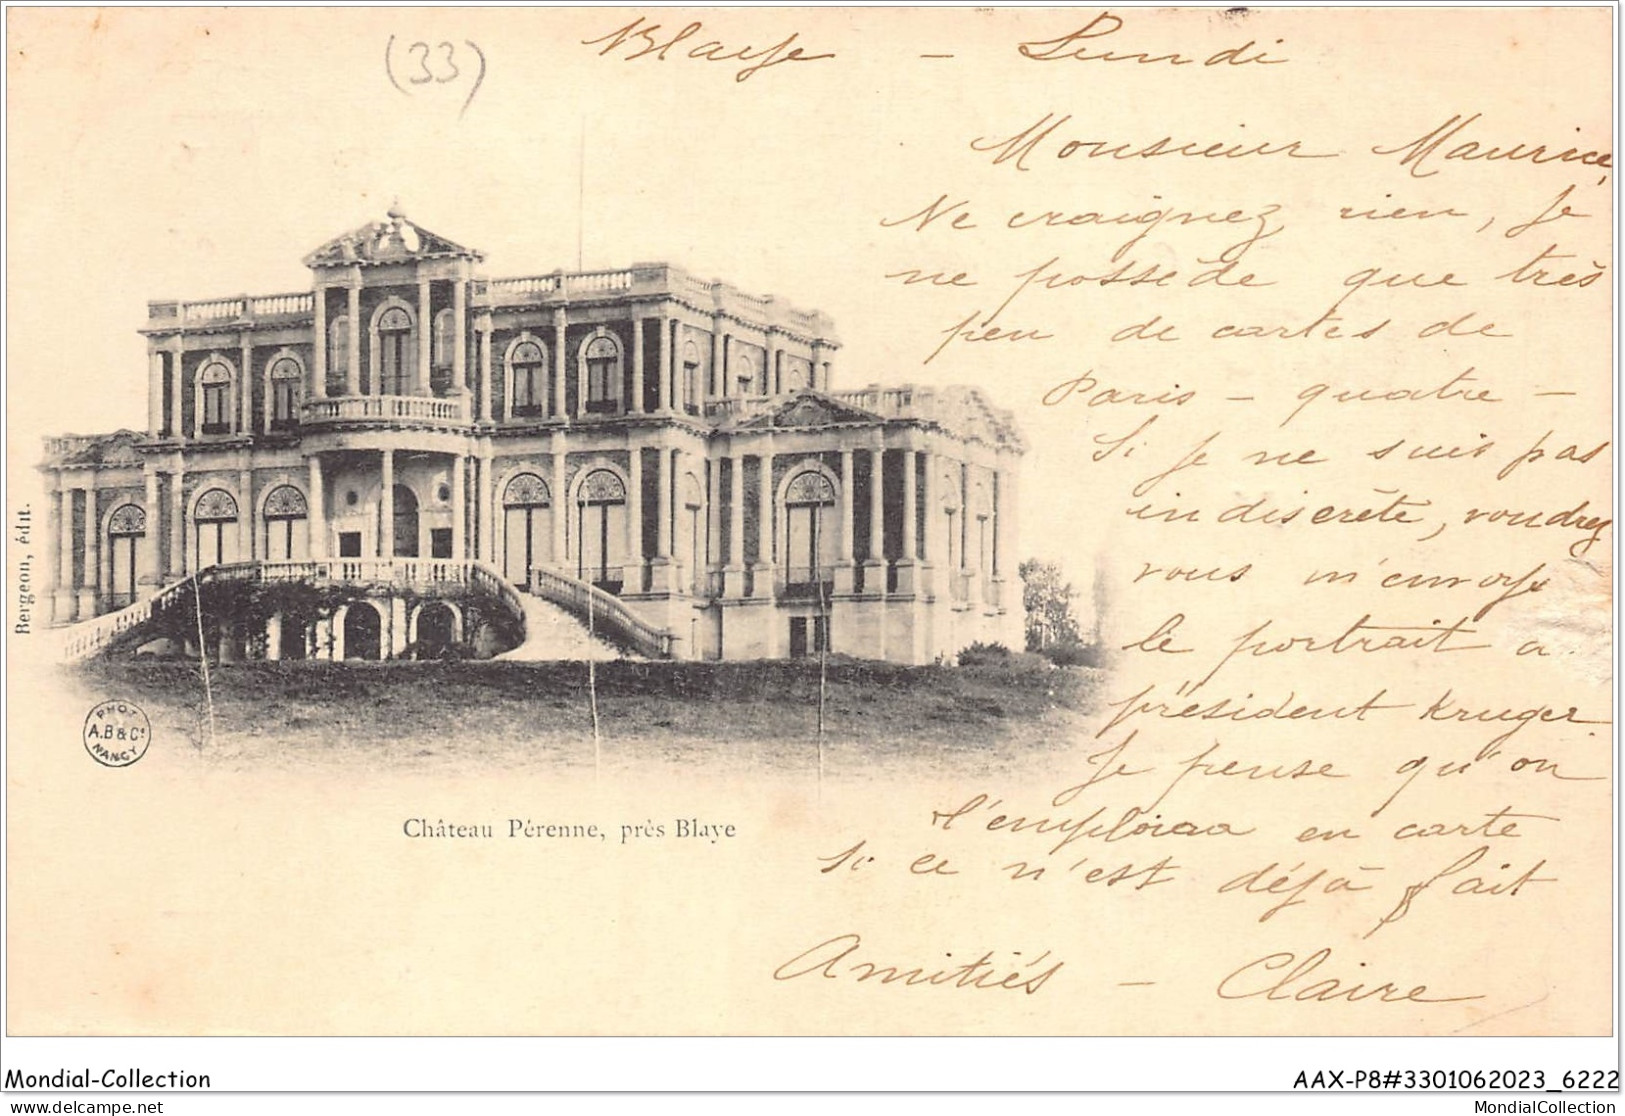 (33)
Blaye – Lundi
Monsieur Maurice,
Ne craignez rien, je
ne possède que très
peu de cartes de
Paris – quatre –
Si je ne suis pas
indiscrète, voudrez
vous m'envoyer
le portrait a
président Kruger
Je pense qu'on
l'emploiaa en carte
Si ce n'est déjà fait
Amitiés – Claire
Bergeon, édit.
PHOT
A.B & Cie
NANCY
Château Pérenne, près Blaye
Mondial-Collection
AAX-P8#3301062023_6222
Mondial-Collection.com
MondialCollection